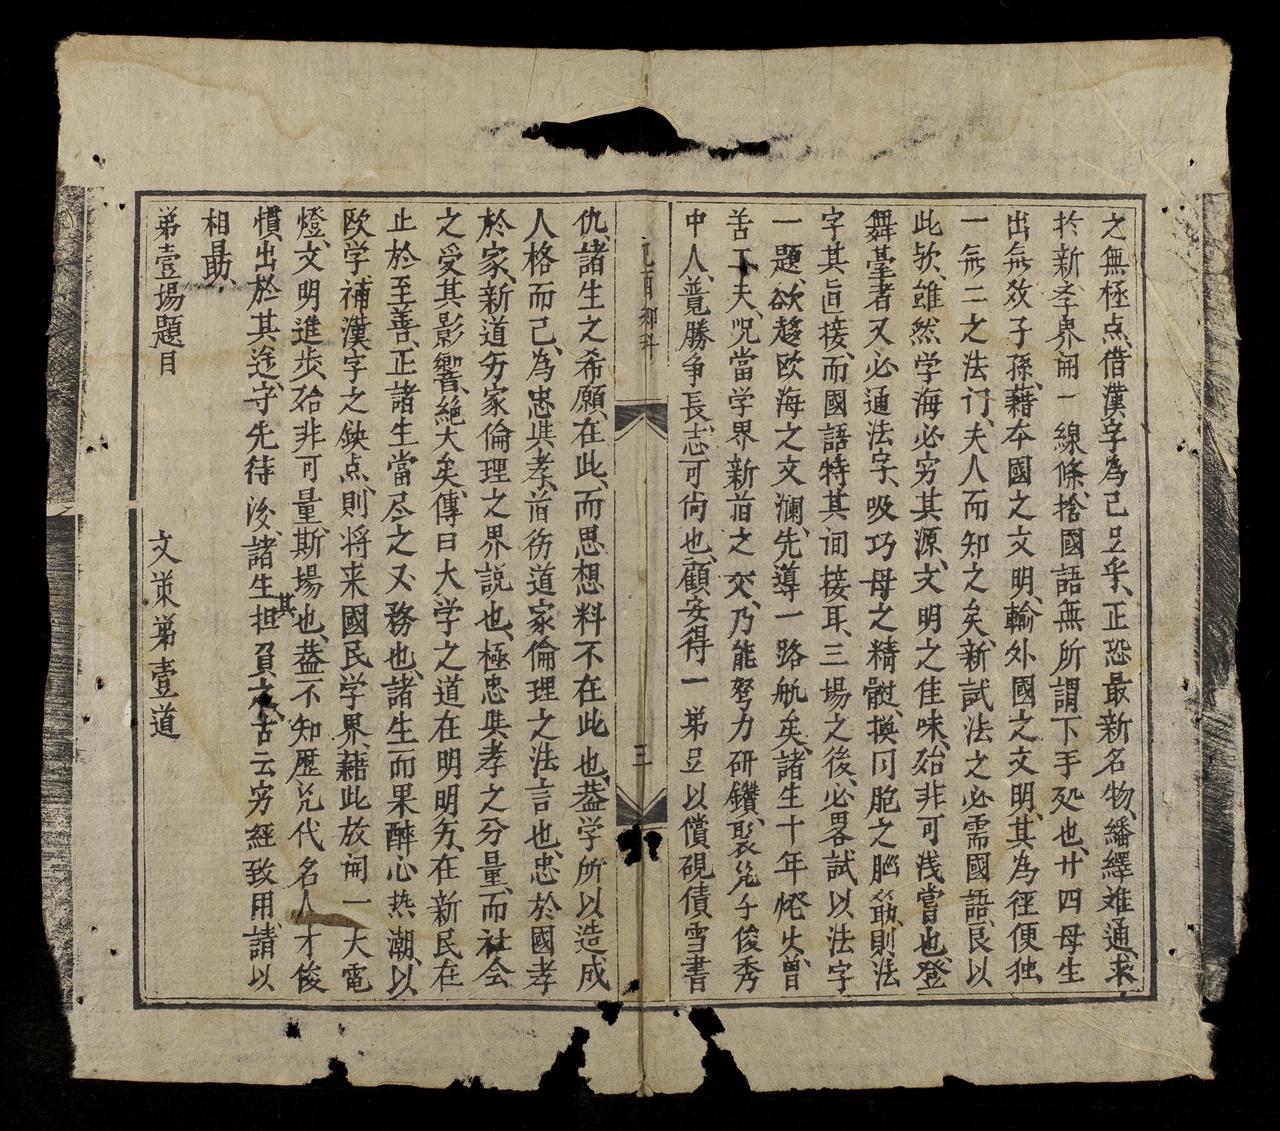 之無極点、借漢字為己足乎、正恐最新名物、繙繹难通、求
於新孛界開一線條、捨國語無所謂下手処也、廿四母生
出無数子孫、藉本國之文明、輸外國之文明、其為徑便独
一無二之法门、夫人而知之矣、新試法之必需國語、良以
此欤、雖然学海必穷其源、文明之佳味、殆非可浅嘗也、登
舞䑓者又必通法字、吸巧母之精髓、換同胞之腦筋、則法
字其直接、而國語特其间接耳、三場之後、必畧試以法字
一題、欲趍欧海之文瀾、先導一路航矣、諸生十年燈火、曽
苦工夫、况當学界新旧之交、乃能努力研鑽、褎然于俊秀
中人、競勝争長、志可尚也、顧安得一第足以償硯債雪書
己酉鄉科
三
仇、諸生之希願、在此、而思想料不在此也、盖学所以造成
人格而己、為忠與孝、旧倫道家倫理之法言也、忠於國孝
於家、新道為家倫理之界説也、極忠與孝之分量、而社会
之受其影響、絶大矣、傳曰大学之道在明明為、在新民在
止於至善、正諸生當尽之义務也、諸生而果醉心热潮、以
欧学補漢字之鈌点、則将来國民学界、藉此放開一大電
燈、文明進步、殆非可量、斯場也、盖不知歷几代名人才俊
慣、出於其途、守先待後、諸生其担負之、古云穷經致用、請以
相勗、
弟壹場題目
文策弟壹道